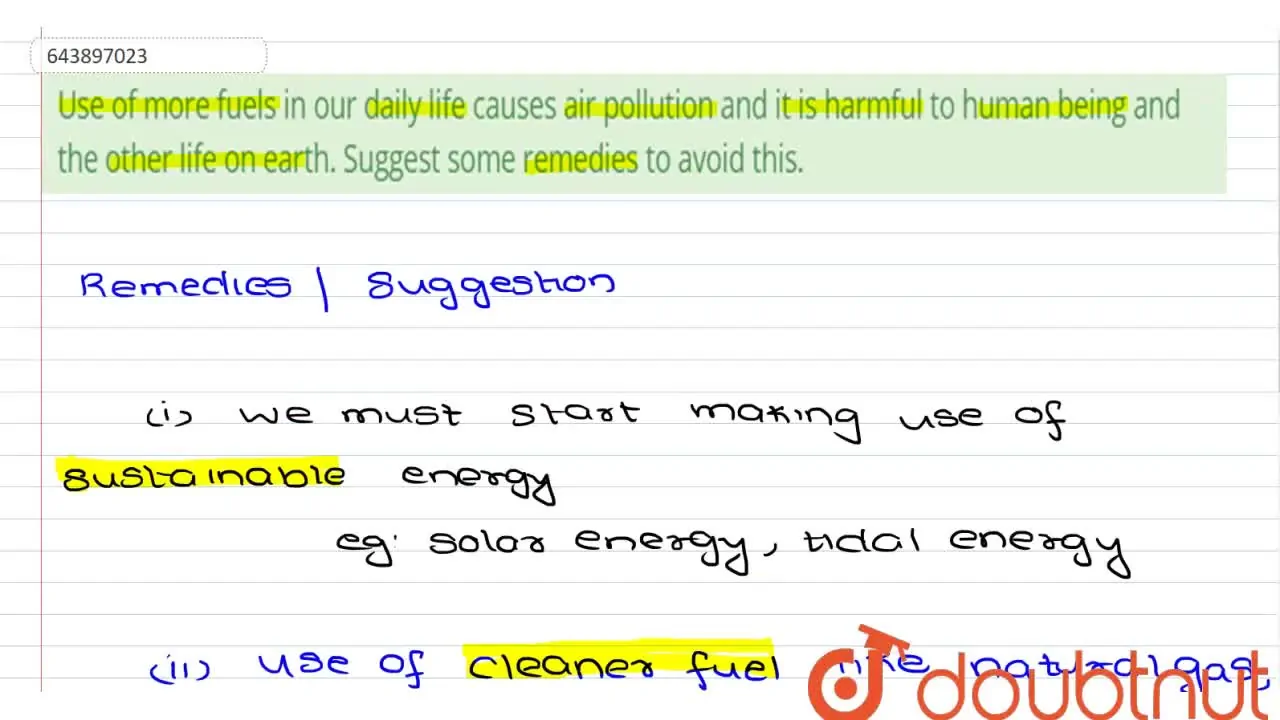 643897023
Use of more fuels in our daily life causes air pollution and it is harmful to human being and
the other life on earth. Suggest some remedies to avoid this.
Remedies | Suggestion
(i) we must start making use of
sustainable energy
eg: solar energy, tidal energy
(ii) use of cleaner fuel like natural gas,
doubtnut